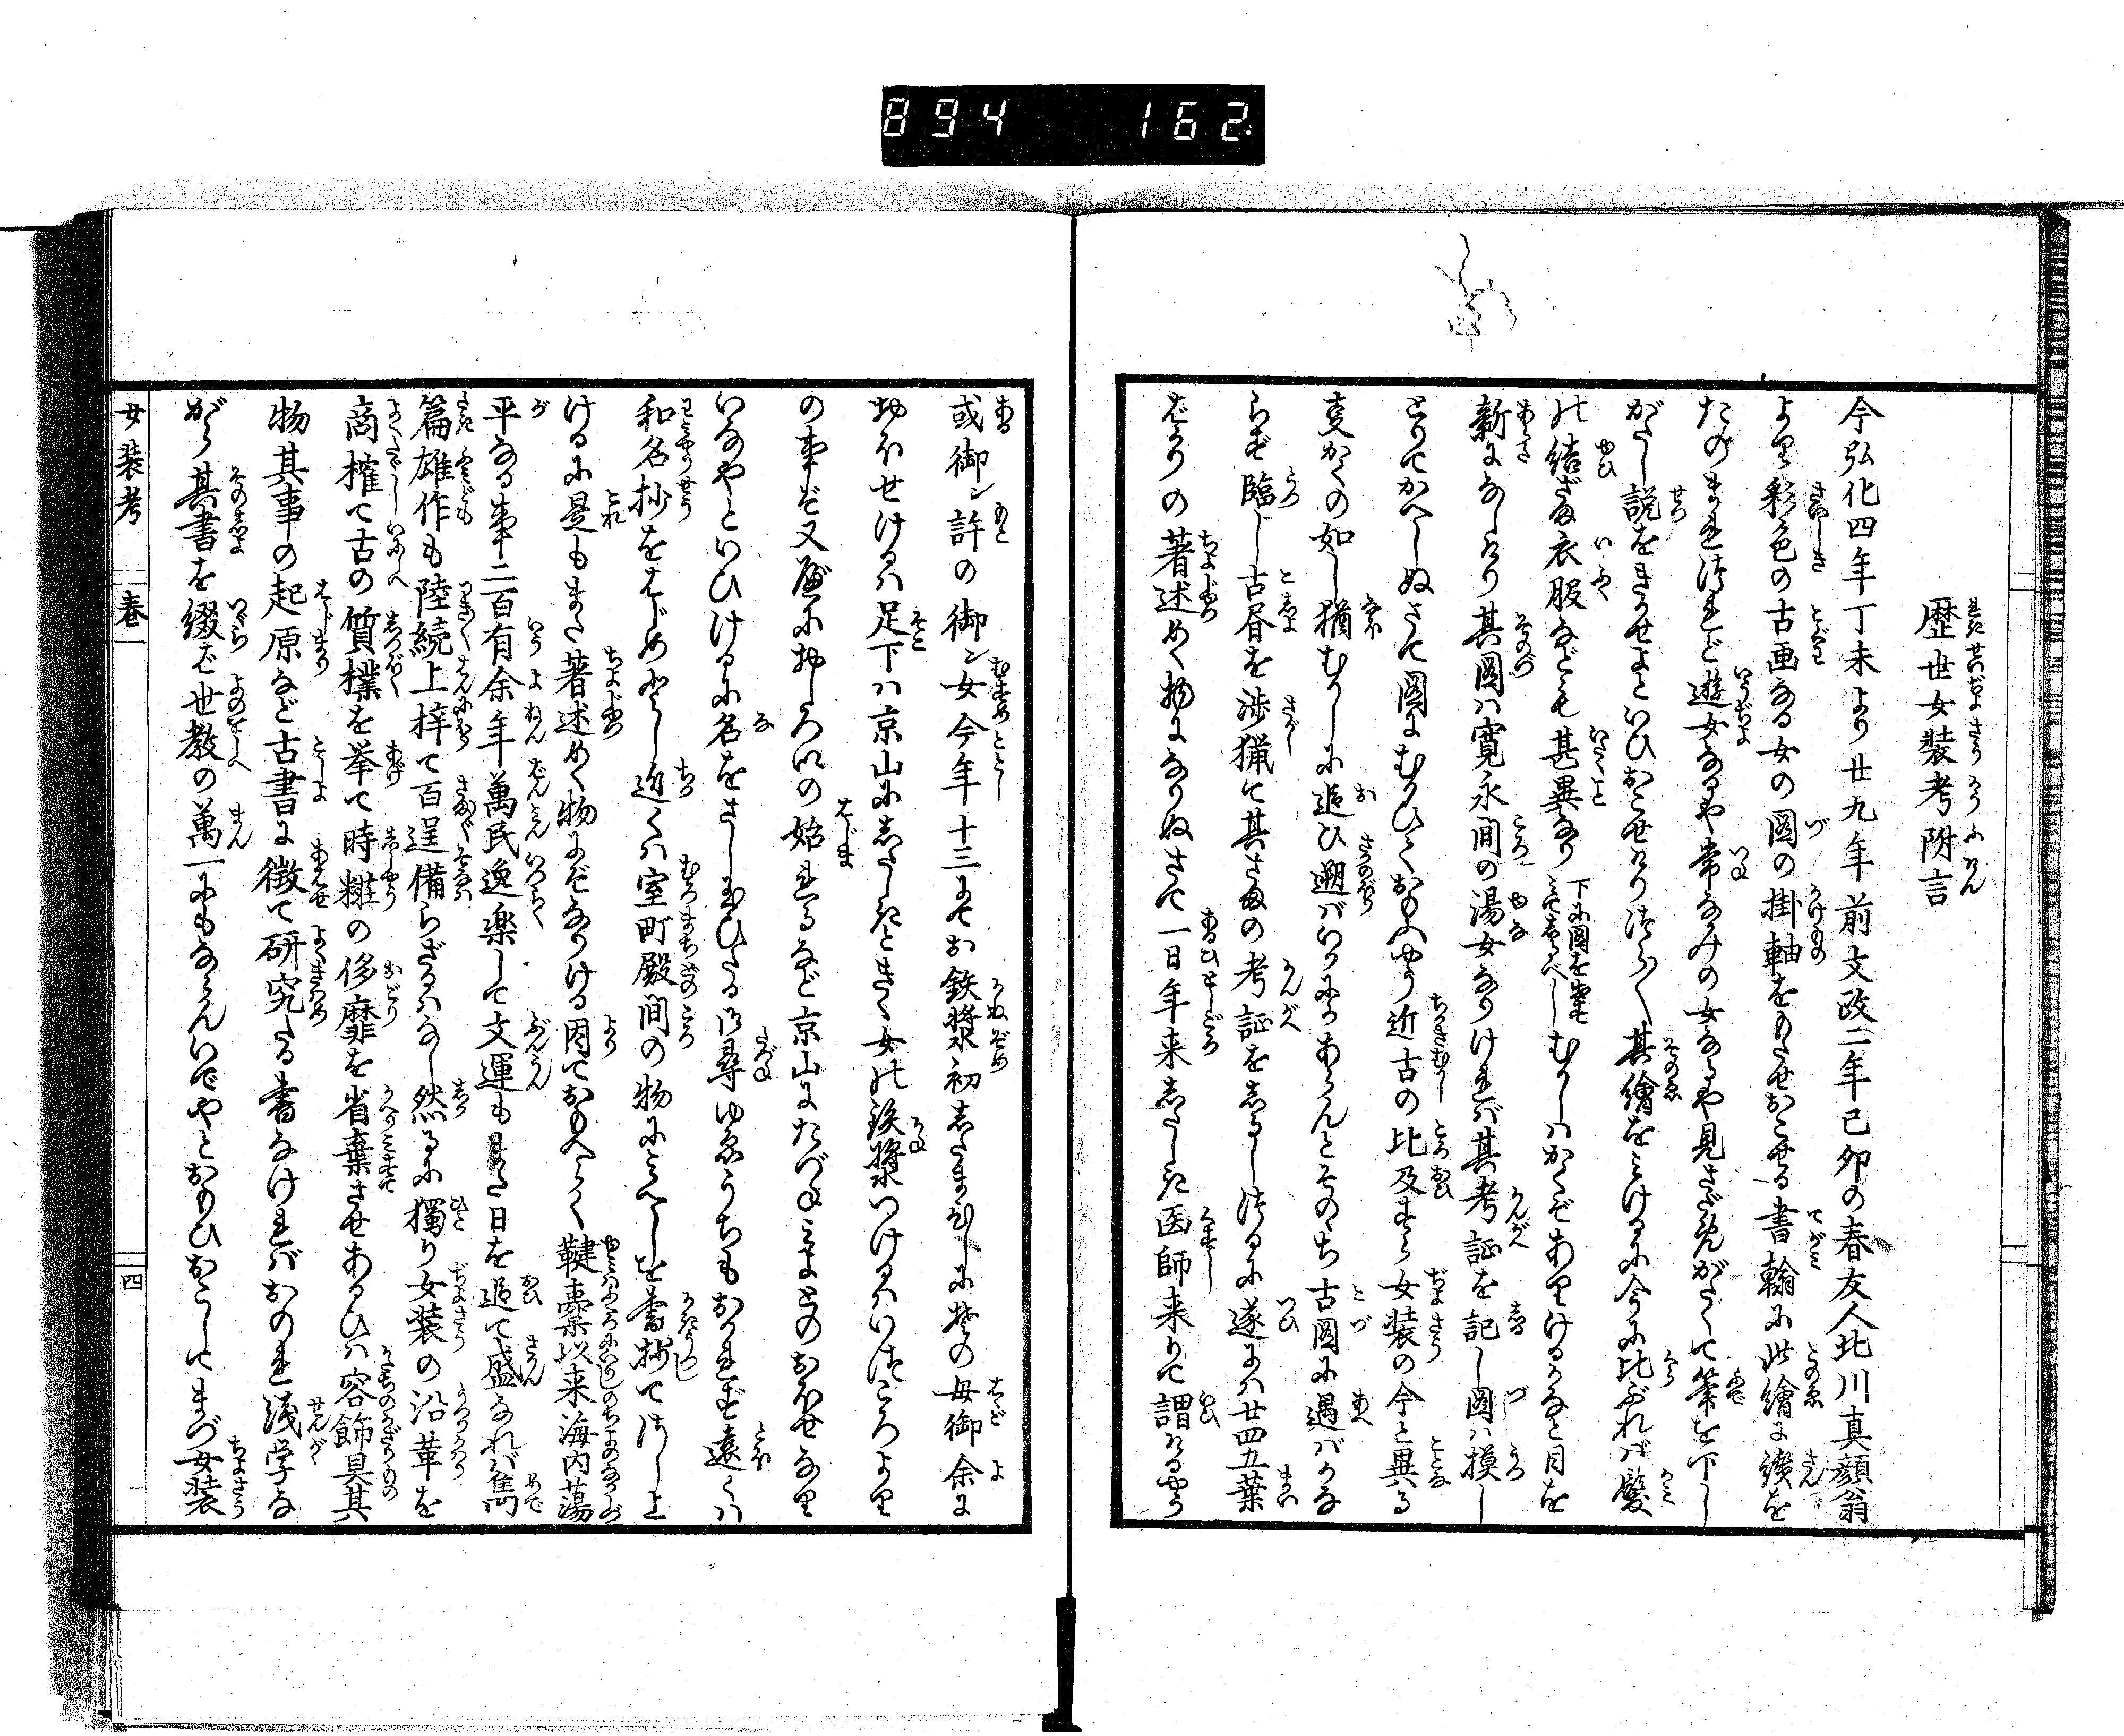 894 162
歴世女装考附言
今弘化四年丁未より廿九年前文政二年己卯の春友人北川真顔翁
より彩色の古画なる女の図の掛軸をもたせおこせる書翰に此繪に纉を
たのまれ侍れど遊女なるや常なみの女なるや見さだめがたくて筆を下し
がたし説をきかせよといひおこせけり侍らく其繪をみけるに今に比ぶれば髪
の結ざま衣服なども甚異なり下に図を出すみてしるべしむかしハかくぞありけるかなと目を
新になしけり其図ハ寛永間の湯女なりければ其考証を記し図ハ摸し
とりてかへしぬさて図にむかひておもふやう近古の比及すら女装の今と異る
事かくの如し猶むかしに追ひ遡バいかにかあらんとそのゝち古図に遇バかな
らず臨し古昏を渉猟て其さまの考証をしるし侍るに遂にハ廿四五葉
ばかりの著述めく物になりぬさて一日年来したしき医師来りて謂けるやう
或御ン許の御ン女今年十三にてお鉄漿初したまひしに其の母御余に
おほせけるハ足下ハ京山にしたしときく女の鉄漿つけるハいつころより
の事ぞ又歴におしろいの始れるなど京山にたづねみよとのおほせなり
いなやといひけるに名をさし玉ひたる御尋ゆゑうちもおかれず遠くハ
和名抄をはじめとし近くハ室町殿間の物にみへしを書抄て侍し上
けるに是もまた著述めく物にぞなりける因ておもへらく鞬橐以来海内蕩
平なる事二百有余年萬民逸楽して文運もまた日を追て盛なれバ雋
篇雄作も陸続上梓て百逞備らざるハなし然るに獨り女装の沿革を
商搉て古の質樸を挙て時粧の侈靡を省棄させあるひハ容飾具其
物其事の起原など古書に徴て研究たる書なければおのれ浅学な
がら其書を綴ば世教の萬一にもならんいでやとおもひおこしてまづ女装
女装考 春 四